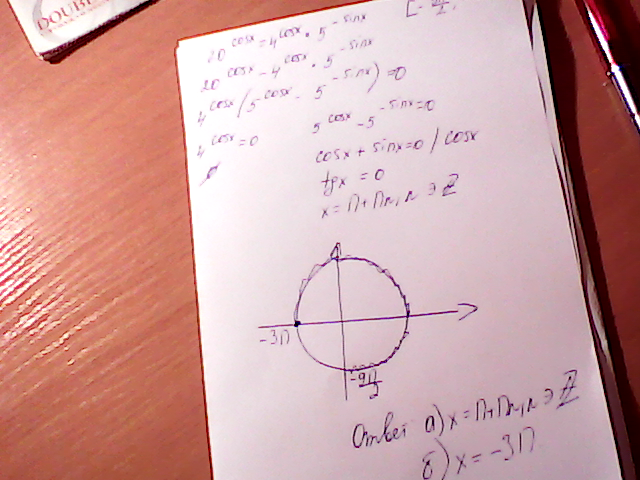 DOUBL
20^cosx = 4^cosx · 5^-sinx
20^cosx - 4^cosx · 5^-sinx
4^cosx (5^cosx - 5^-sinx) = 0
4^cosx = 0 5^cosx - 5^-sinx = 0
∅ cosx + sinx = 0 / cosx
tgx = 0
x = П + Пn, n Э Z
-3П
-9П/2
Ответ а) x = П + Пn, n Э Z
б) x = -3П